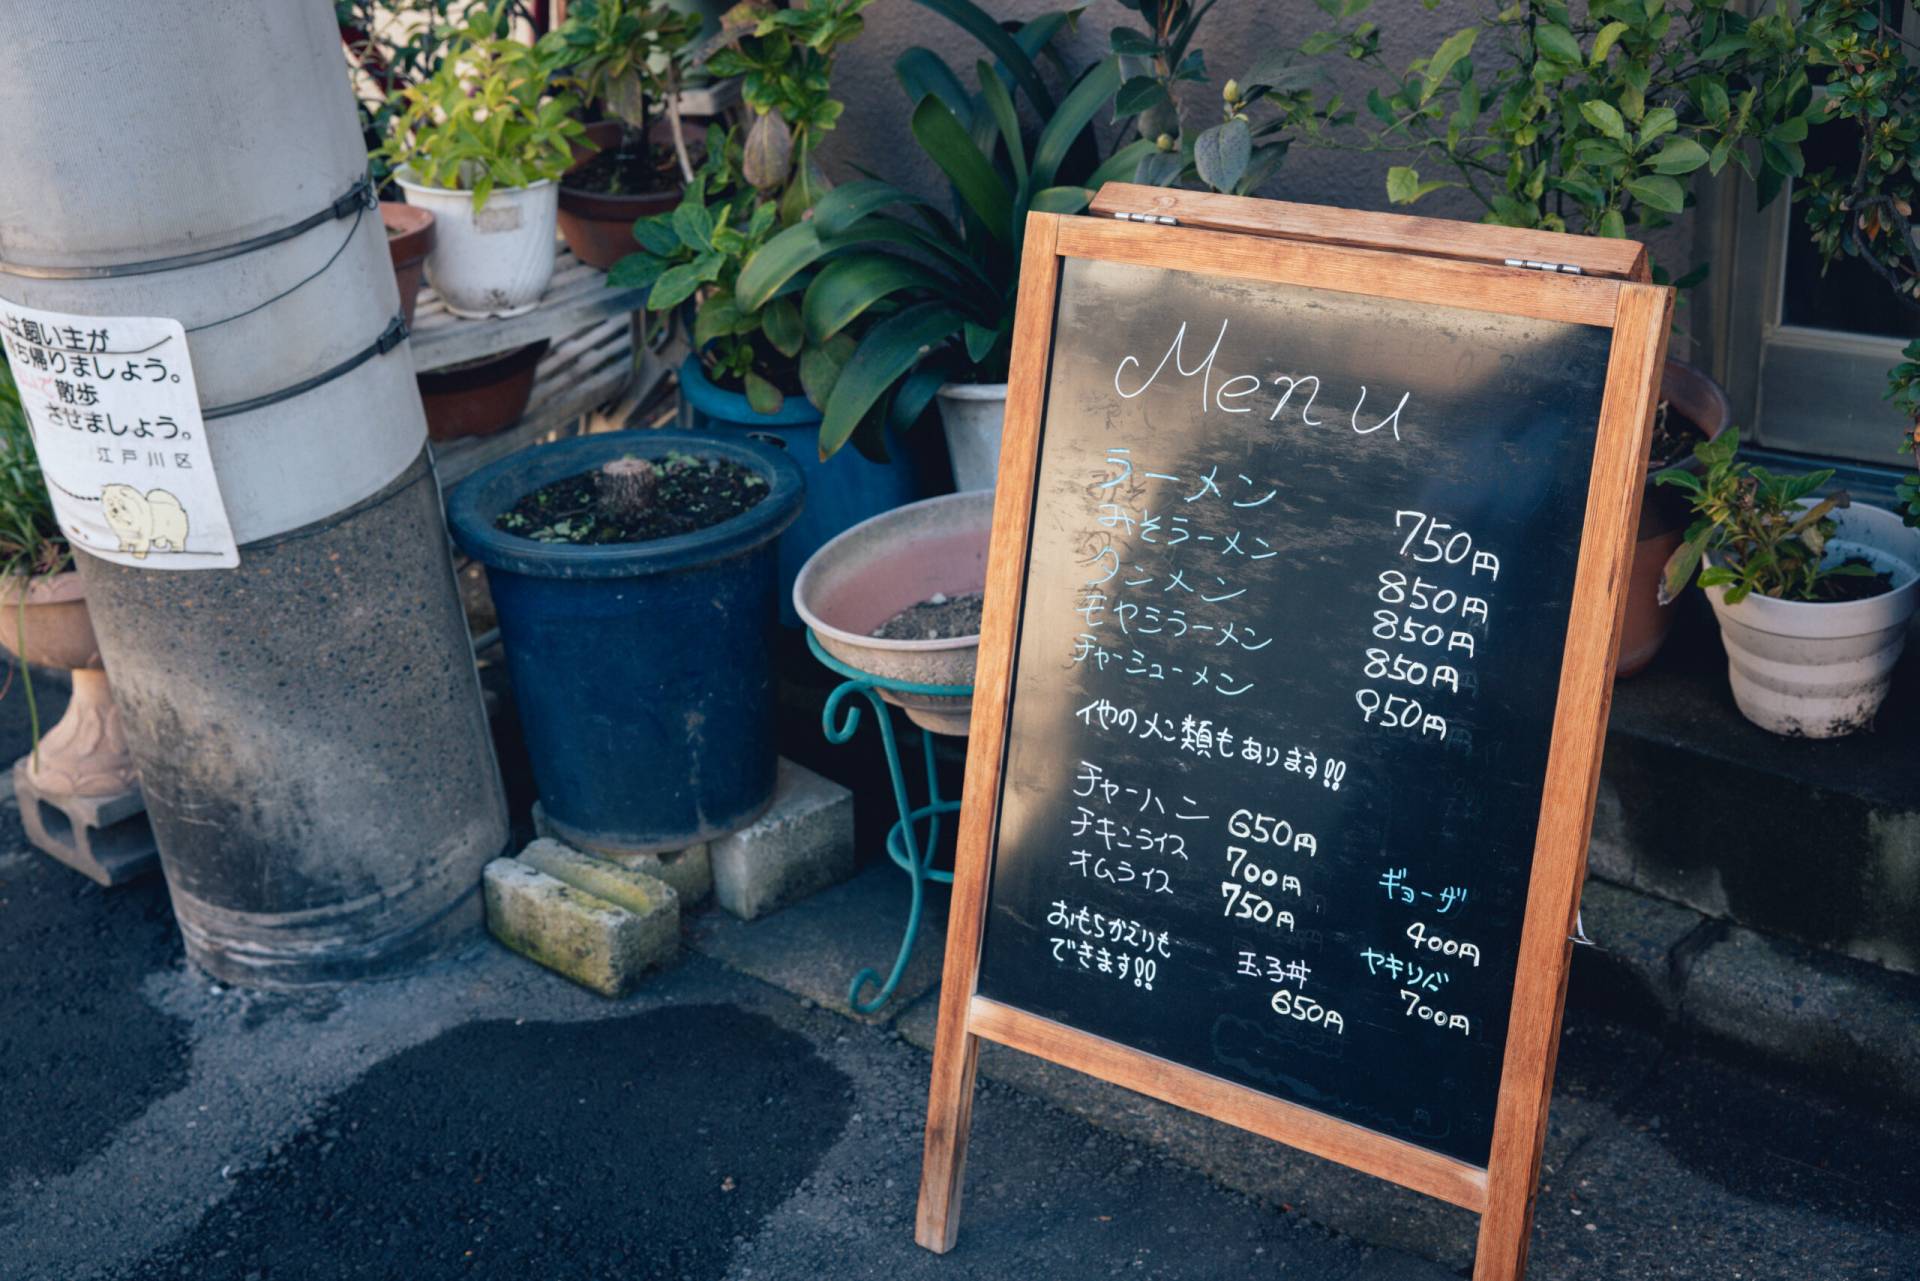 は飼い主が
ち帰りましょう。
散歩
させましょう。
江戸川区
Menu
ラーメン 750円
みそラーメン 850円
タンメン 850円
モヤシラーメン 850円
チャーシューメン 950円
他のメン類もあります!!
チャーハン 650円
チキンライス 700円
オムライス 750円
ギョーザ
400円
おもちかえりも
できます!!
玉子丼
650円
ヤキソバ
700円